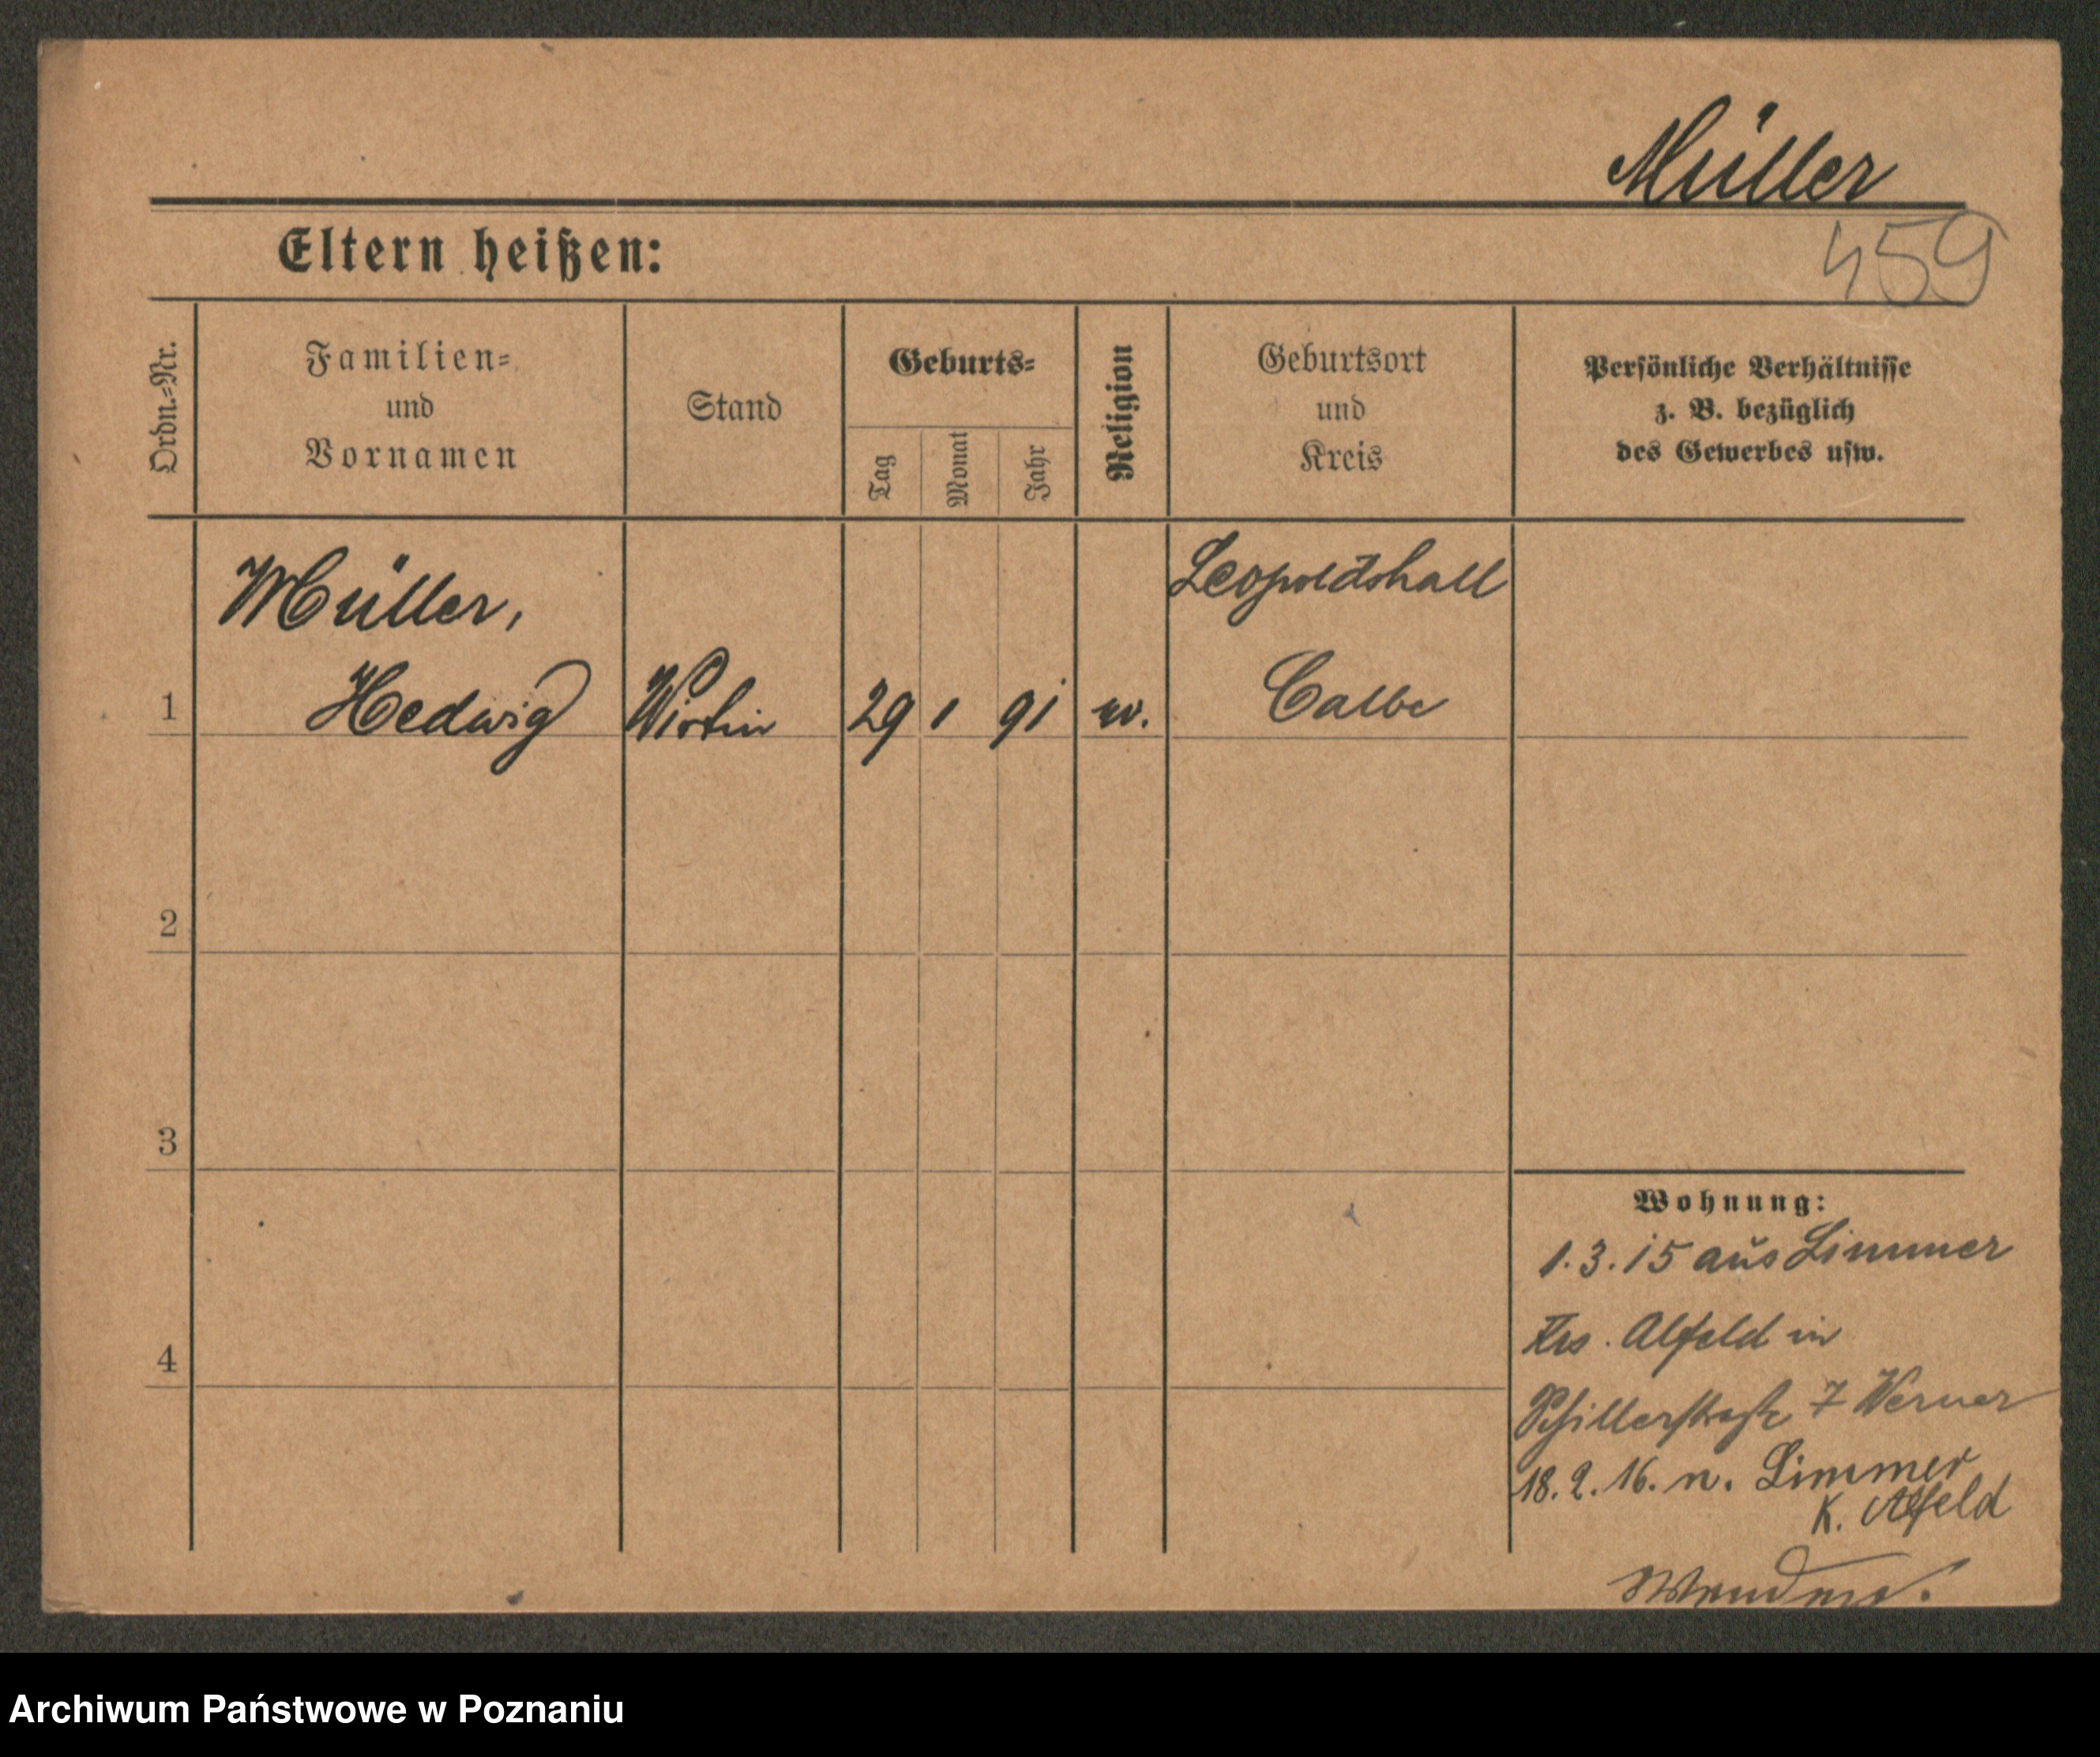 Müller
459
Eltern heißen:
Ordn.=Nr.
Familien=
und
Vornamen
Stand
Geburts=
Tag
Monat
Jahr
Religion
Geburtsort
und
Kreis
Persönliche Verhältnisse
z. B. bezüglich
des Gewerbes usw.
Müller,
Leopoldshall
1
Hedwig
Wirtin
29
1
91
ev.
Calbe
2
3
4
Wohnung:
1.3.15 aus Limmer
Krs. Alfeld in
Schillerstraße 7 Werner
18.2.16. n. Limmer
K. Alfeld
Archiwum Państwowe w Poznaniu